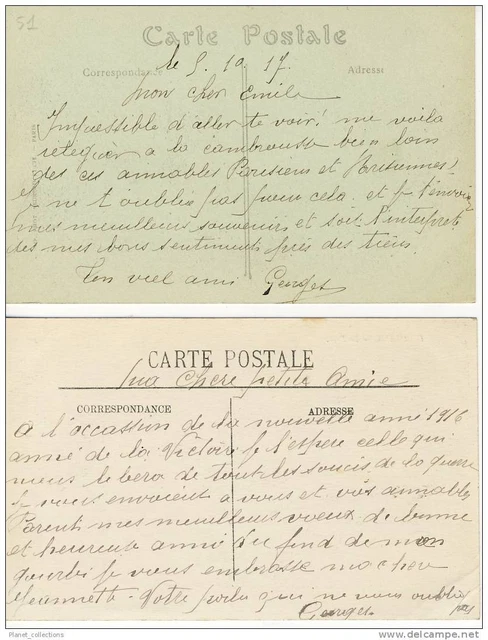 51
Carte Postale
le 5. 10. 17.
Correspondance
Adresse
mon cher Emile
Impossible d'aller te voir! me voila
à la cambrousse bien loin
des ces aimables Parisiens et Parisiennes!
Je ne t'oublie pas pour cela. et je t'envoie
mes meilleurs souvenirs et soit l'interprete
des mes bons sentiments près des tiens.
Ton viel ami Georges
CARTE POSTALE
Ma Chere petite Amie
CORRESPONDANCE
ADRESSE
A l'occassion de la nouvelle année 1916
année de la Victoire je l'espere celle qui
nous de tout les soucis de la guerre
je vous envoient a vous et vos aimables
Parents mes meilleurs voeux de bonne
et heureuse année du fond de mon
gourbi je vous embrasse ma chere
Jeannette. Votre poilu qui ne vous oublie
pas
Georges
Planet_collections
www.delcampe.net